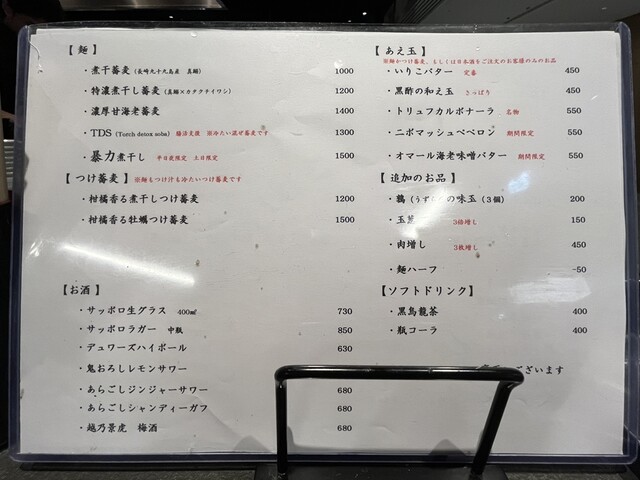 【 麺 】
・煮干蕎麦（長崎九十九島産 真鰯） 1000
・特濃煮干し蕎麦（真鰯×カタクチイワシ） 1200
・濃厚甘海老蕎麦 1400
・TDS（Torch detox soba）腸活支援 ※冷たい混ぜ蕎麦です 1300
・暴力煮干し 平日夜限定 土日限定 1500
【 つけ蕎麦 】※麺もつけ汁も冷たいつけ蕎麦です
・柑橘香る煮干しつけ蕎麦 1200
・柑橘香る牡蠣つけ蕎麦 1500
【お酒 】
・サッポロ生グラス 400㎖ 730
・サッポロラガー 中瓶 850
・デュワーズハイボール 630
・鬼おろしレモンサワー
・あらごしジンジャーサワー 680
・あらごしシャンディーガフ 680
・越乃景虎 梅酒 680
【 あえ玉 】
※麺かつけ蕎麦、もしくは日本酒をご注文のお客様のみのお品
・いりこバター 定番 450
・黒酢の和え玉 さっぱり 450
・トリュフカルボナーラ 名物 550
・ニボマッシュペペロン 期間限定 550
・オマール海老味噌バター 期間限定 550
【 追加のお品 】
・鶉（うず の味玉（3個） 200
・玉 3倍増し 150
・肉増し 3枚増し 450
・麺ハーフ -50
【ソフトドリンク】
・黒烏龍茶 400
・瓶コーラ 400
ございます